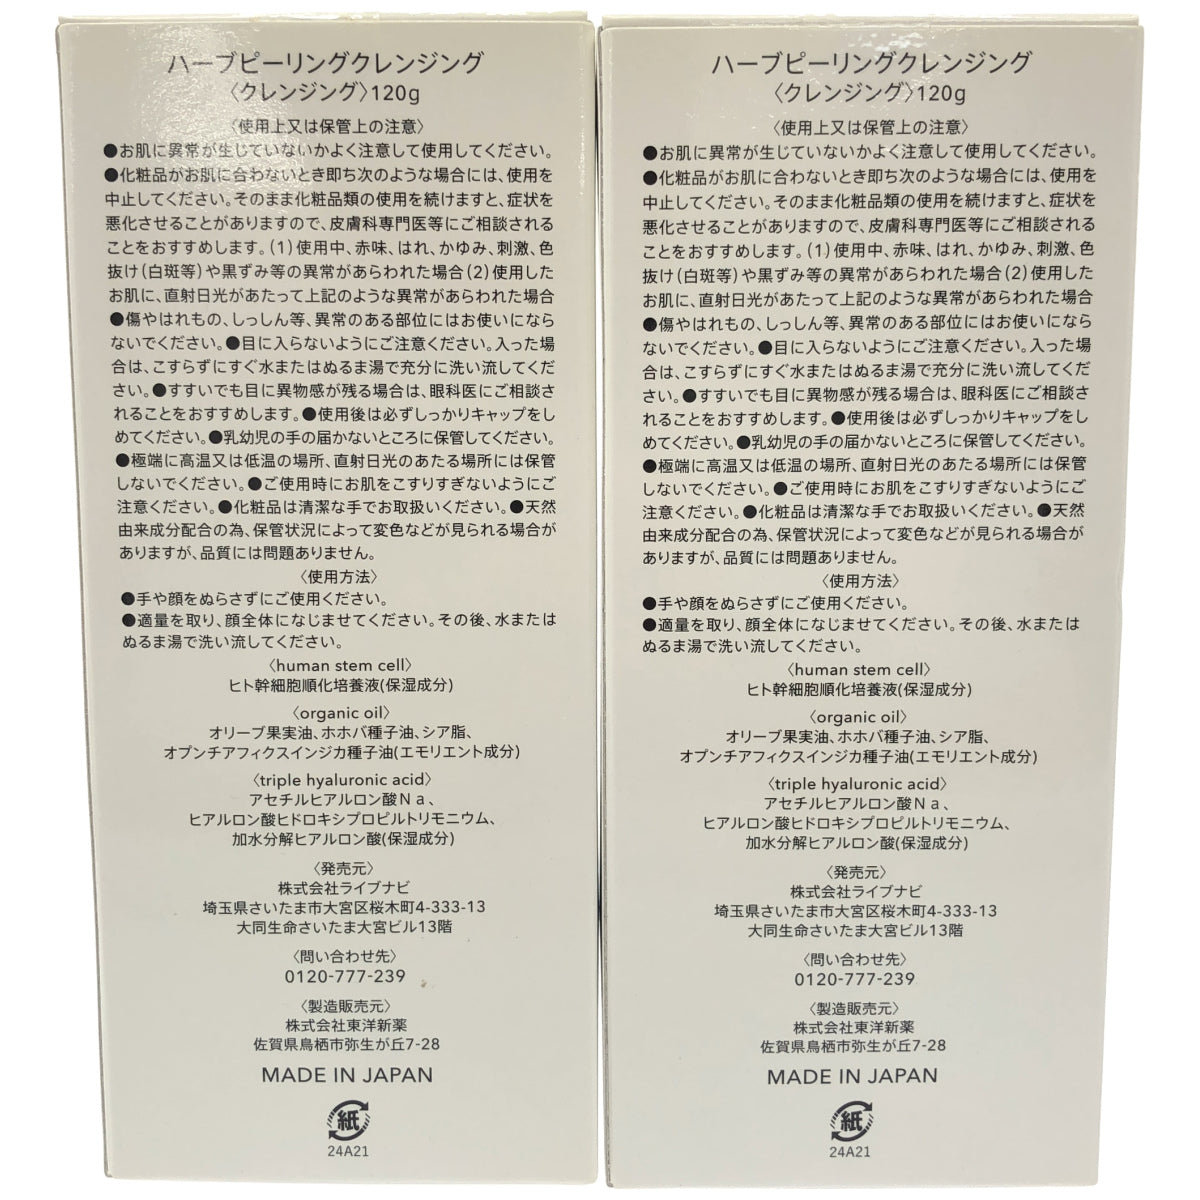 ハーブピーリングクレンジング
〈クレンジング〉120g
〈使用上又は保管上の注意〉
●お肌に異常が生じていないかよく注意して使用してください。
●化粧品がお肌に合わないとき即ち次のような場合には、使用を
中止してください。そのまま化粧品類の使用を続けますと、症状を
悪化させることがありますので、皮膚科専門医等にご相談される
ことをおすすめします。(1)使用中、赤味、はれ、かゆみ、刺激、色
抜け(白斑等)や黒ずみ等の異常があらわれた場合(2)使用した
お肌に、直射日光があたって上記のような異常があらわれた場合
●傷やはれもの、しっしん等、異常のある部位にはお使いになら
ないでください。●目に入らないようにご注意ください。入った場
合は、こすらずにすぐ水またはぬるま湯で充分に洗い流してくだ
さい。●すすいでも目に異物感が残る場合は、眼科医にご相談さ
れることをおすすめします。●使用後は必ずしっかりキャップをし
めてください。●乳幼児の手の届かないところに保管してください。
●極端に高温又は低温の場所、直射日光のあたる場所には保管
しないでください。●ご使用時にお肌をこすりすぎないようにご
注意ください。●化粧品は清潔な手でお取扱いください。●天然
由来成分配合の為、保管状況によって変色などが見られる場合が
ありますが、品質には問題ありません。
〈使用方法〉
●手や顔をぬらさずにご使用ください。
●適量を取り、顔全体になじませてください。その後、水または
ぬるま湯で洗い流してください。
〈human stem cell〉
ヒト幹細胞順化培養液(保湿成分)
〈organic oil〉
オリーブ果実油、ホホバ種子油、シア脂、
オプンチアフィクスインジカ種子油(エモリエント成分)
〈triple hyaluronic acid〉
アセチルヒアルロン酸Ｎａ、
ヒアルロン酸ヒドロキシプロピルトリモニウム、
加水分解ヒアルロン酸(保湿成分)
〈発売元〉
株式会社ライブナビ
埼玉県さいたま市大宮区桜木町4-333-13
大同生命さいたま大宮ビル13階
〈問い合わせ先〉
0120-777-239
〈製造販売元〉
株式会社東洋新薬
佐賀県鳥栖市弥生が丘7-28
MADE IN JAPAN
紙
24A21
ハーブピーリングクレンジング
〈クレンジング〉120g
〈使用上又は保管上の注意〉
●お肌に異常が生じていないかよく注意して使用してください。
●化粧品がお肌に合わないとき即ち次のような場合には、使用を
中止してください。そのまま化粧品類の使用を続けますと、症状を
悪化させることがありますので、皮膚科専門医等にご相談される
ことをおすすめします。(1)使用中、赤味、はれ、かゆみ、刺激、色
抜け(白斑等)や黒ずみ等の異常があらわれた場合(2)使用した
お肌に、直射日光があたって上記のような異常があらわれた場合
●傷やはれもの、しっしん等、異常のある部位にはお使いになら
ないでください。●目に入らないようにご注意ください。入った場
合は、こすらずにすぐ水またはぬるま湯で充分に洗い流してくだ
さい。●すすいでも目に異物感が残る場合は、眼科医にご相談さ
れることをおすすめします。●使用後は必ずしっかりキャップをし
めてください。●乳幼児の手の届かないところに保管してください。
●極端に高温又は低温の場所、直射日光のあたる場所には保管
しないでください。●ご使用時にお肌をこすりすぎないようにご
注意ください。●化粧品は清潔な手でお取扱いください。●天然
由来成分配合の為、保管状況によって変色などが見られる場合が
ありますが、品質には問題ありません。
〈使用方法〉
●手や顔をぬらさずにご使用ください。
●適量を取り、顔全体になじませてください。その後、水または
ぬるま湯で洗い流してください。
〈human stem cell〉
ヒト幹細胞順化培養液(保湿成分)
〈organic oil〉
オリーブ果実油、ホホバ種子油、シア脂、
オプンチアフィクスインジカ種子油(エモリエント成分)
〈triple hyaluronic acid〉
アセチルヒアルロン酸Ｎａ、
ヒアルロン酸ヒドロキシプロピルトリモニウム、
加水分解ヒアルロン酸(保湿成分)
〈発売元〉
株式会社ライブナビ
埼玉県さいたま市大宮区桜木町4-333-13
大同生命さいたま大宮ビル13階
〈問い合わせ先〉
0120-777-239
〈製造販売元〉
株式会社東洋新薬
佐賀県鳥栖市弥生が丘7-28
MADE IN JAPAN
紙
24A21